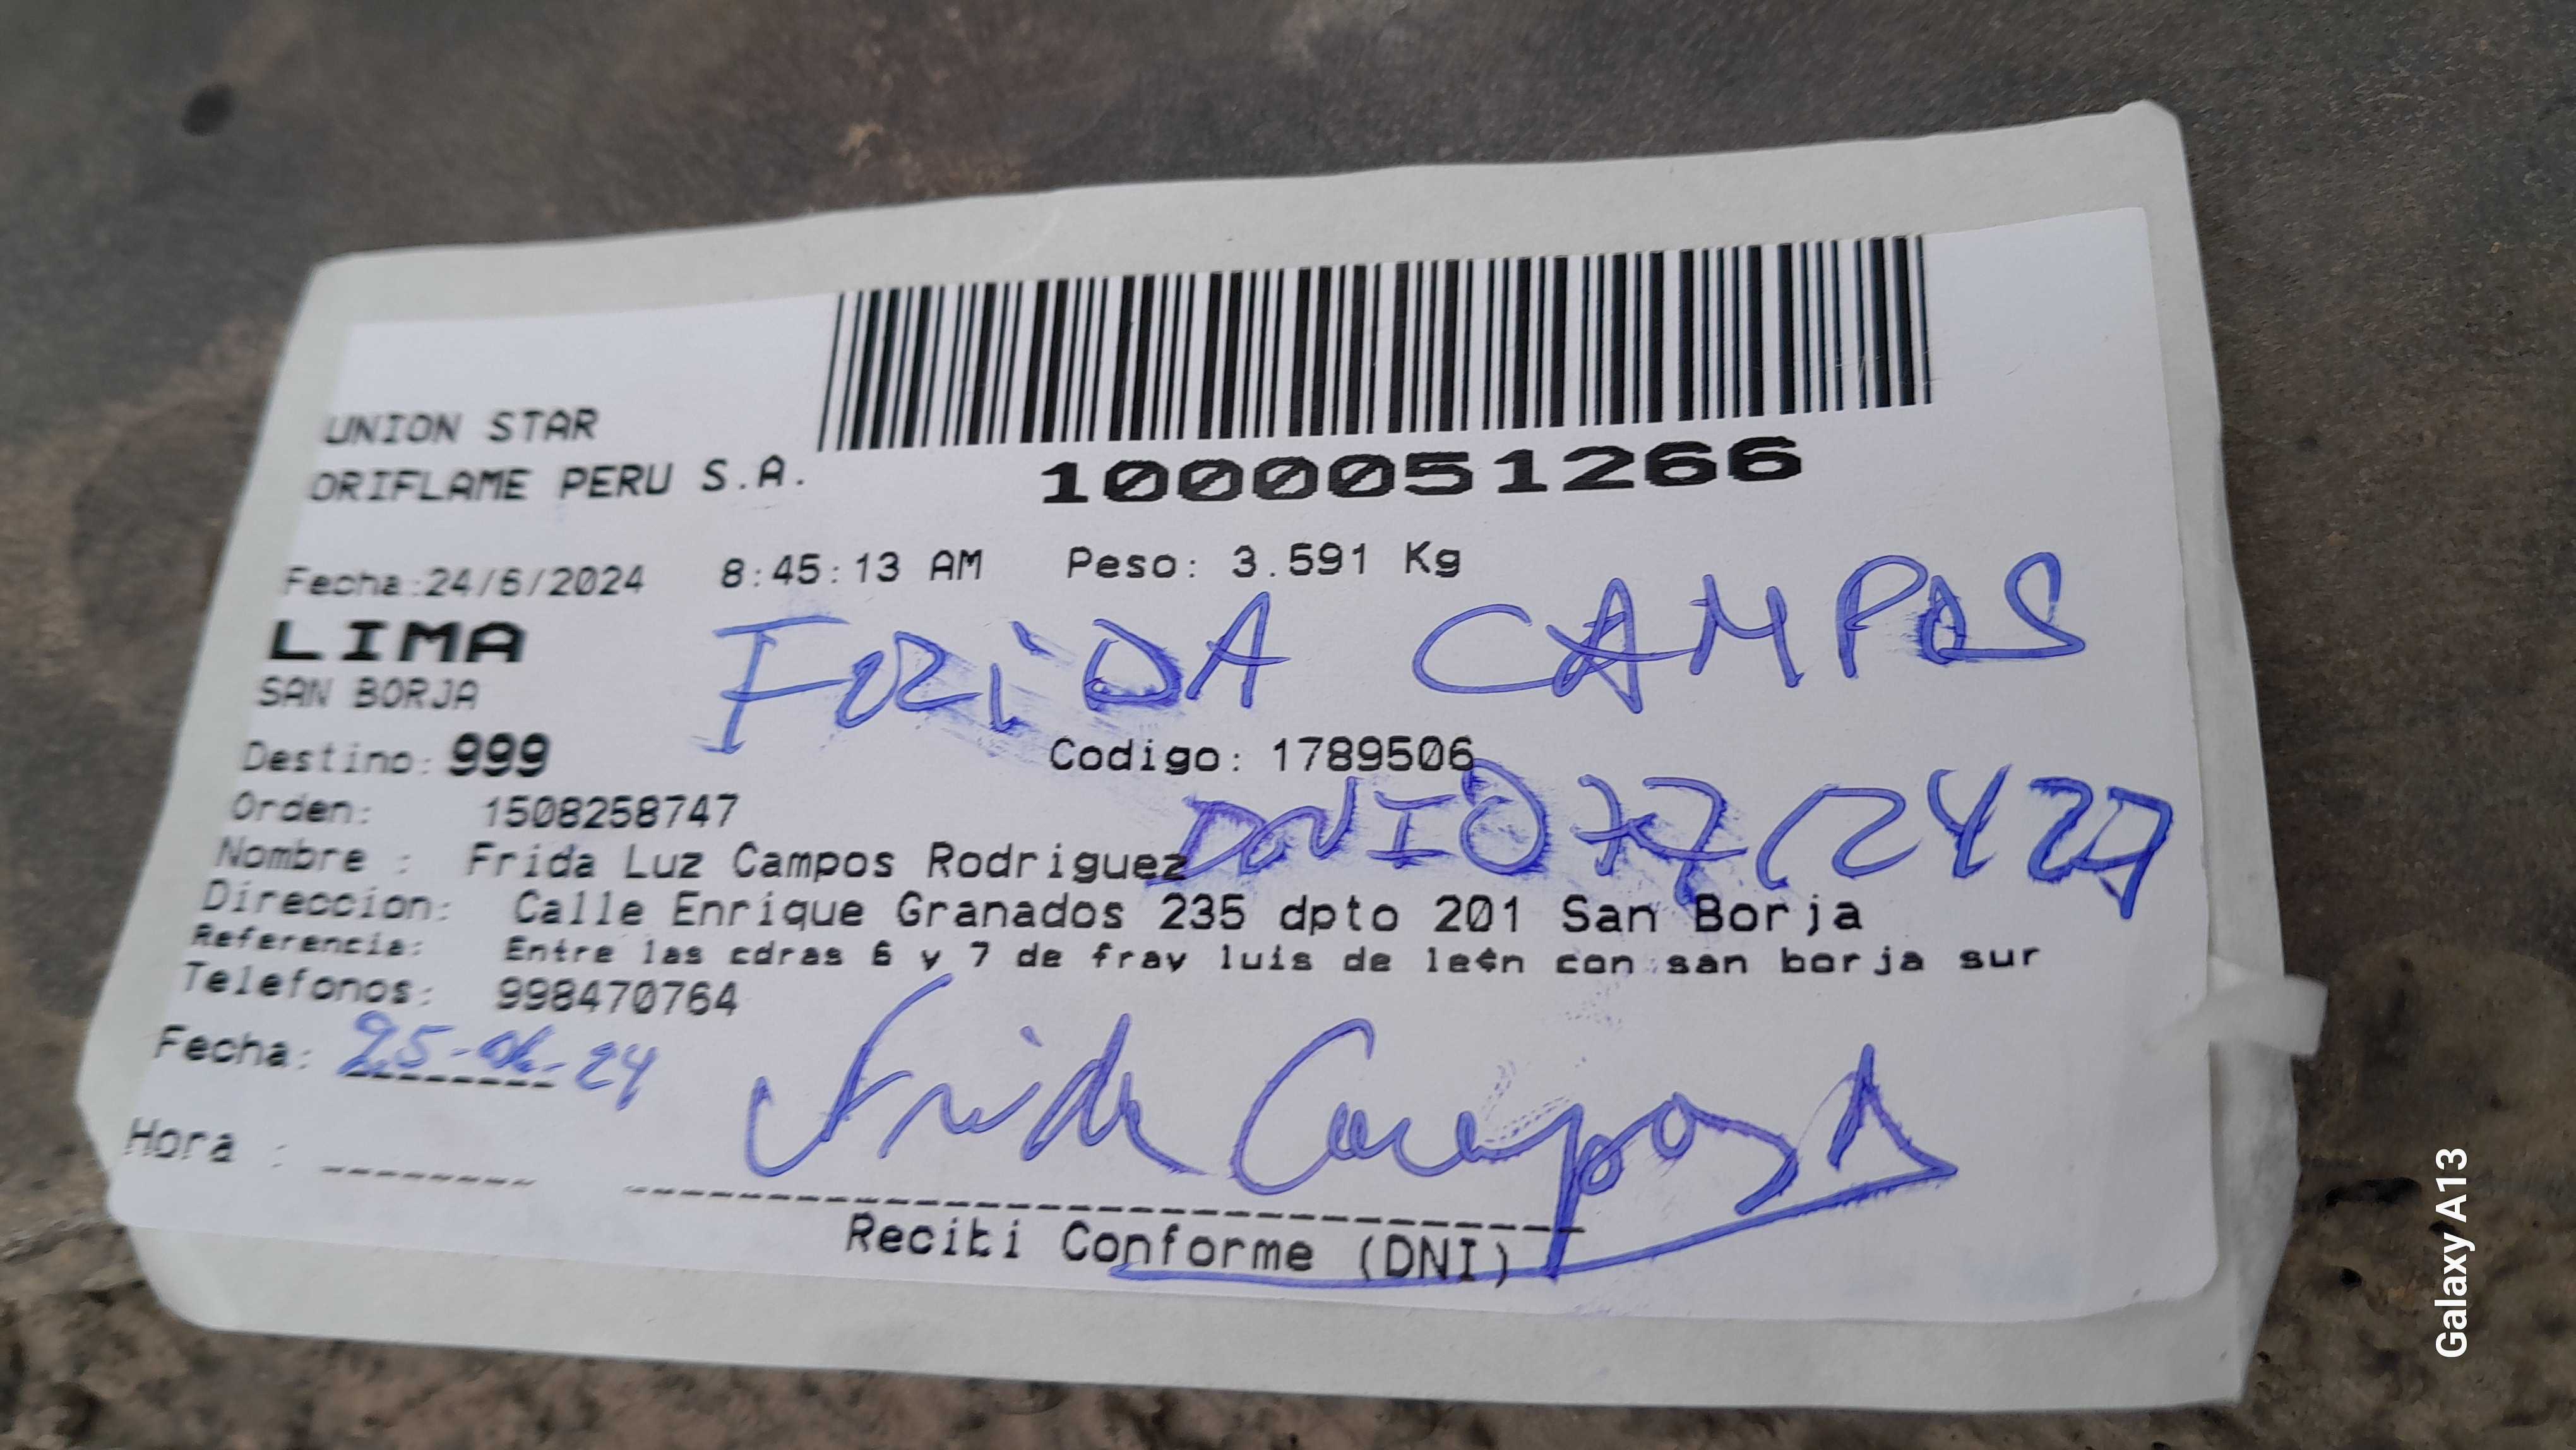 UNION STAR
ORIFLAME PERU S.A.
1000051266
Fecha:24/6/2024 8:45:13 AM Peso: 3.591 Kg
LIMA
FRIDA CAMPOS
SAN BORJA
Destino: 999 Codigo: 1789506
Orden: 1508258747
DNI
Nombre : Frida Luz Campos Rodriguez
Direccion: Calle Enrique Granados 235 dpto 201 San Borja
Referencia: Entre las cdras 6 y 7 de fray luis de le¢n con san borja sur
Telefonos: 998470764
Fecha: 25-06-24
Frida Campos
Hora :
Reciti Conforme (DNI)
Galaxy A13